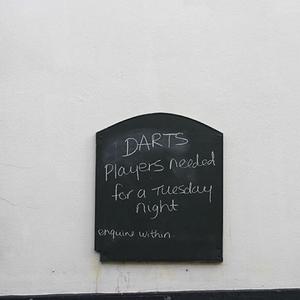 DARTS
Players needed
for a Tuesday
night
enquire within.